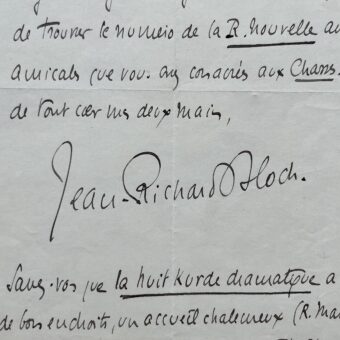 de trouver le numéro de la R. Nouvelle au
amicales que vous avez consacrés aux Chass
de tout cœur mes deux mains,
Jean-Richard Bloch.
Savez-vous que la nuit Kurde dramatique a
de bons endroits, un accueil chaleureux (R. Mar